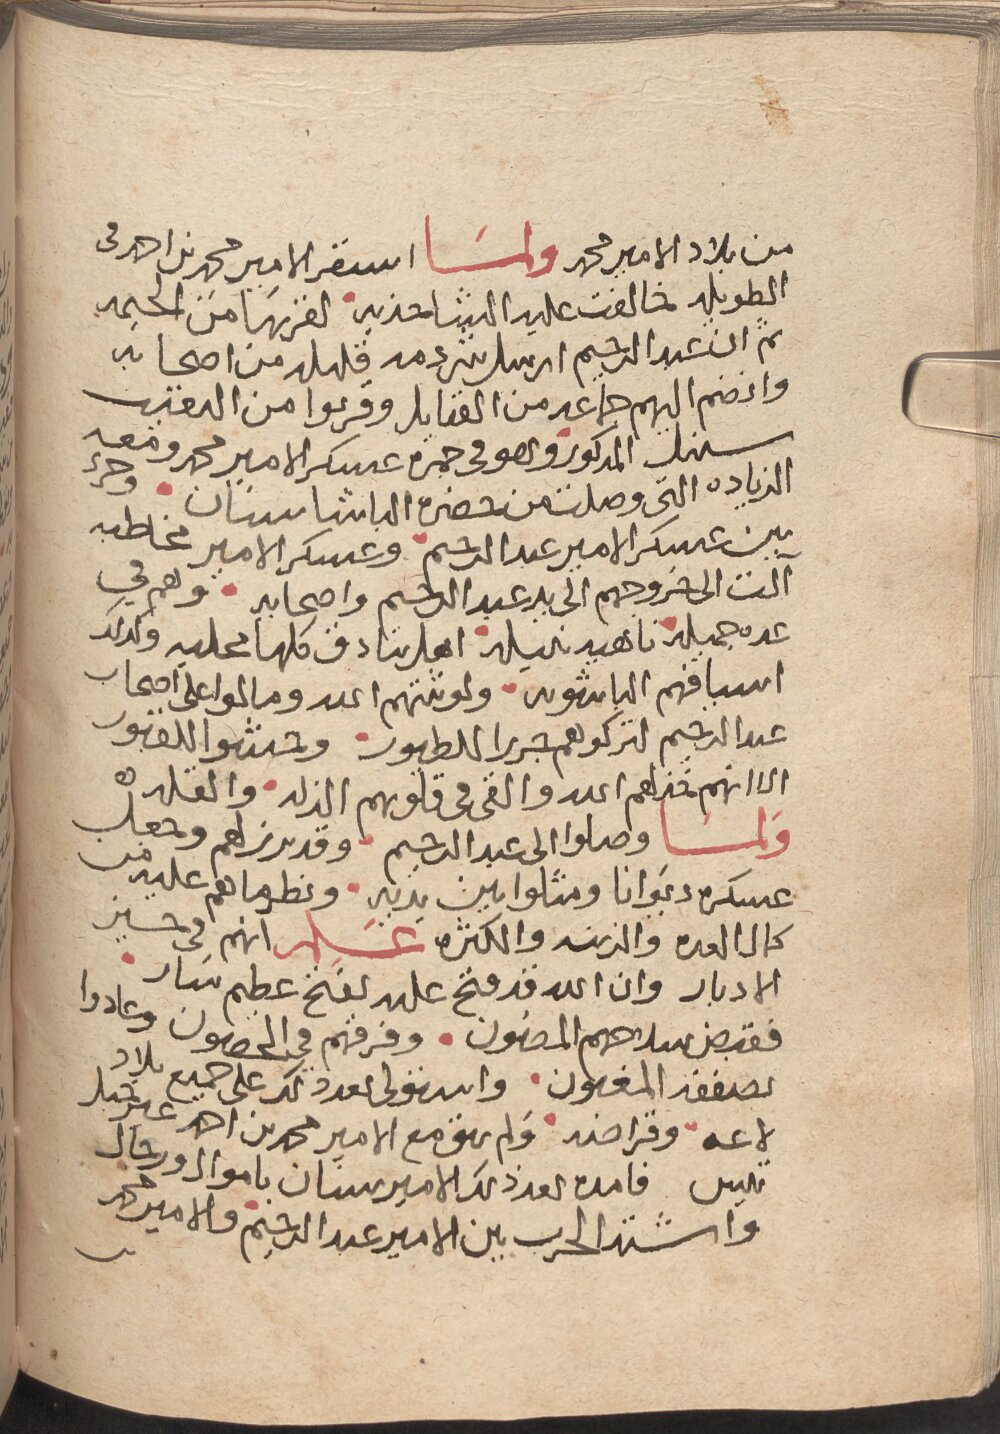 من بلاد الامير محمد ولمــا استقر الامير محمد بن احمد في
الطويله خالفت عليه البثنا محذيه لقربها من الحيمه
ثم ان عبد الرحيم ارسل شرذمه قليله من اصحابه
وانضم اليهم جماعه من القبايل وقربوا من النقيب
سنبل المذكور وهو في جمرة عسكر الامير محمد ومعه
الزياده التي وصلت من حضرة الباشا سنان وجرت
بين عسكر الامير عبد الرحيم وعسكر الامير مخاطبه
آلت الى خروجهم الى يد عبد الرحيم واصحابه وهم في
عده جميله ناهيه نبيله اهل بنادق كلها محليه وكذلك
اسبافهم الباشويه ولو ثبتهم الله ومالوا على اصحاب
عبد الرحيم لتركوهم جزرا للطيور وحشوا للقبور
الا انهم خذلهم الله والقى في قلوبهم الذله والقله
ولمــا وصلوا الى عبد الرحيم وقد برز لهم وجعل
عسكره ديوانا ومثلوا بين يديه ونظر ما هم عليه من
كمال العده والزينه والكثره علم انهم في حيز
الادبار وان الله قد فتح عليه بفتح عظيم سار
فقبض سلاحهم المصون وفرقهم في الحصون وعادوا
بصفقة المغبون واستولى بعد ذلك على جميع بلاد
لاعه وقراضه ولم يبق مع الامير محمد بن احمد غير جبل
تيس فامده بعد ذلك الامير سنان باموال ورجال
واشتد الحرب بين الامير عبد الرحيم والامير محمد